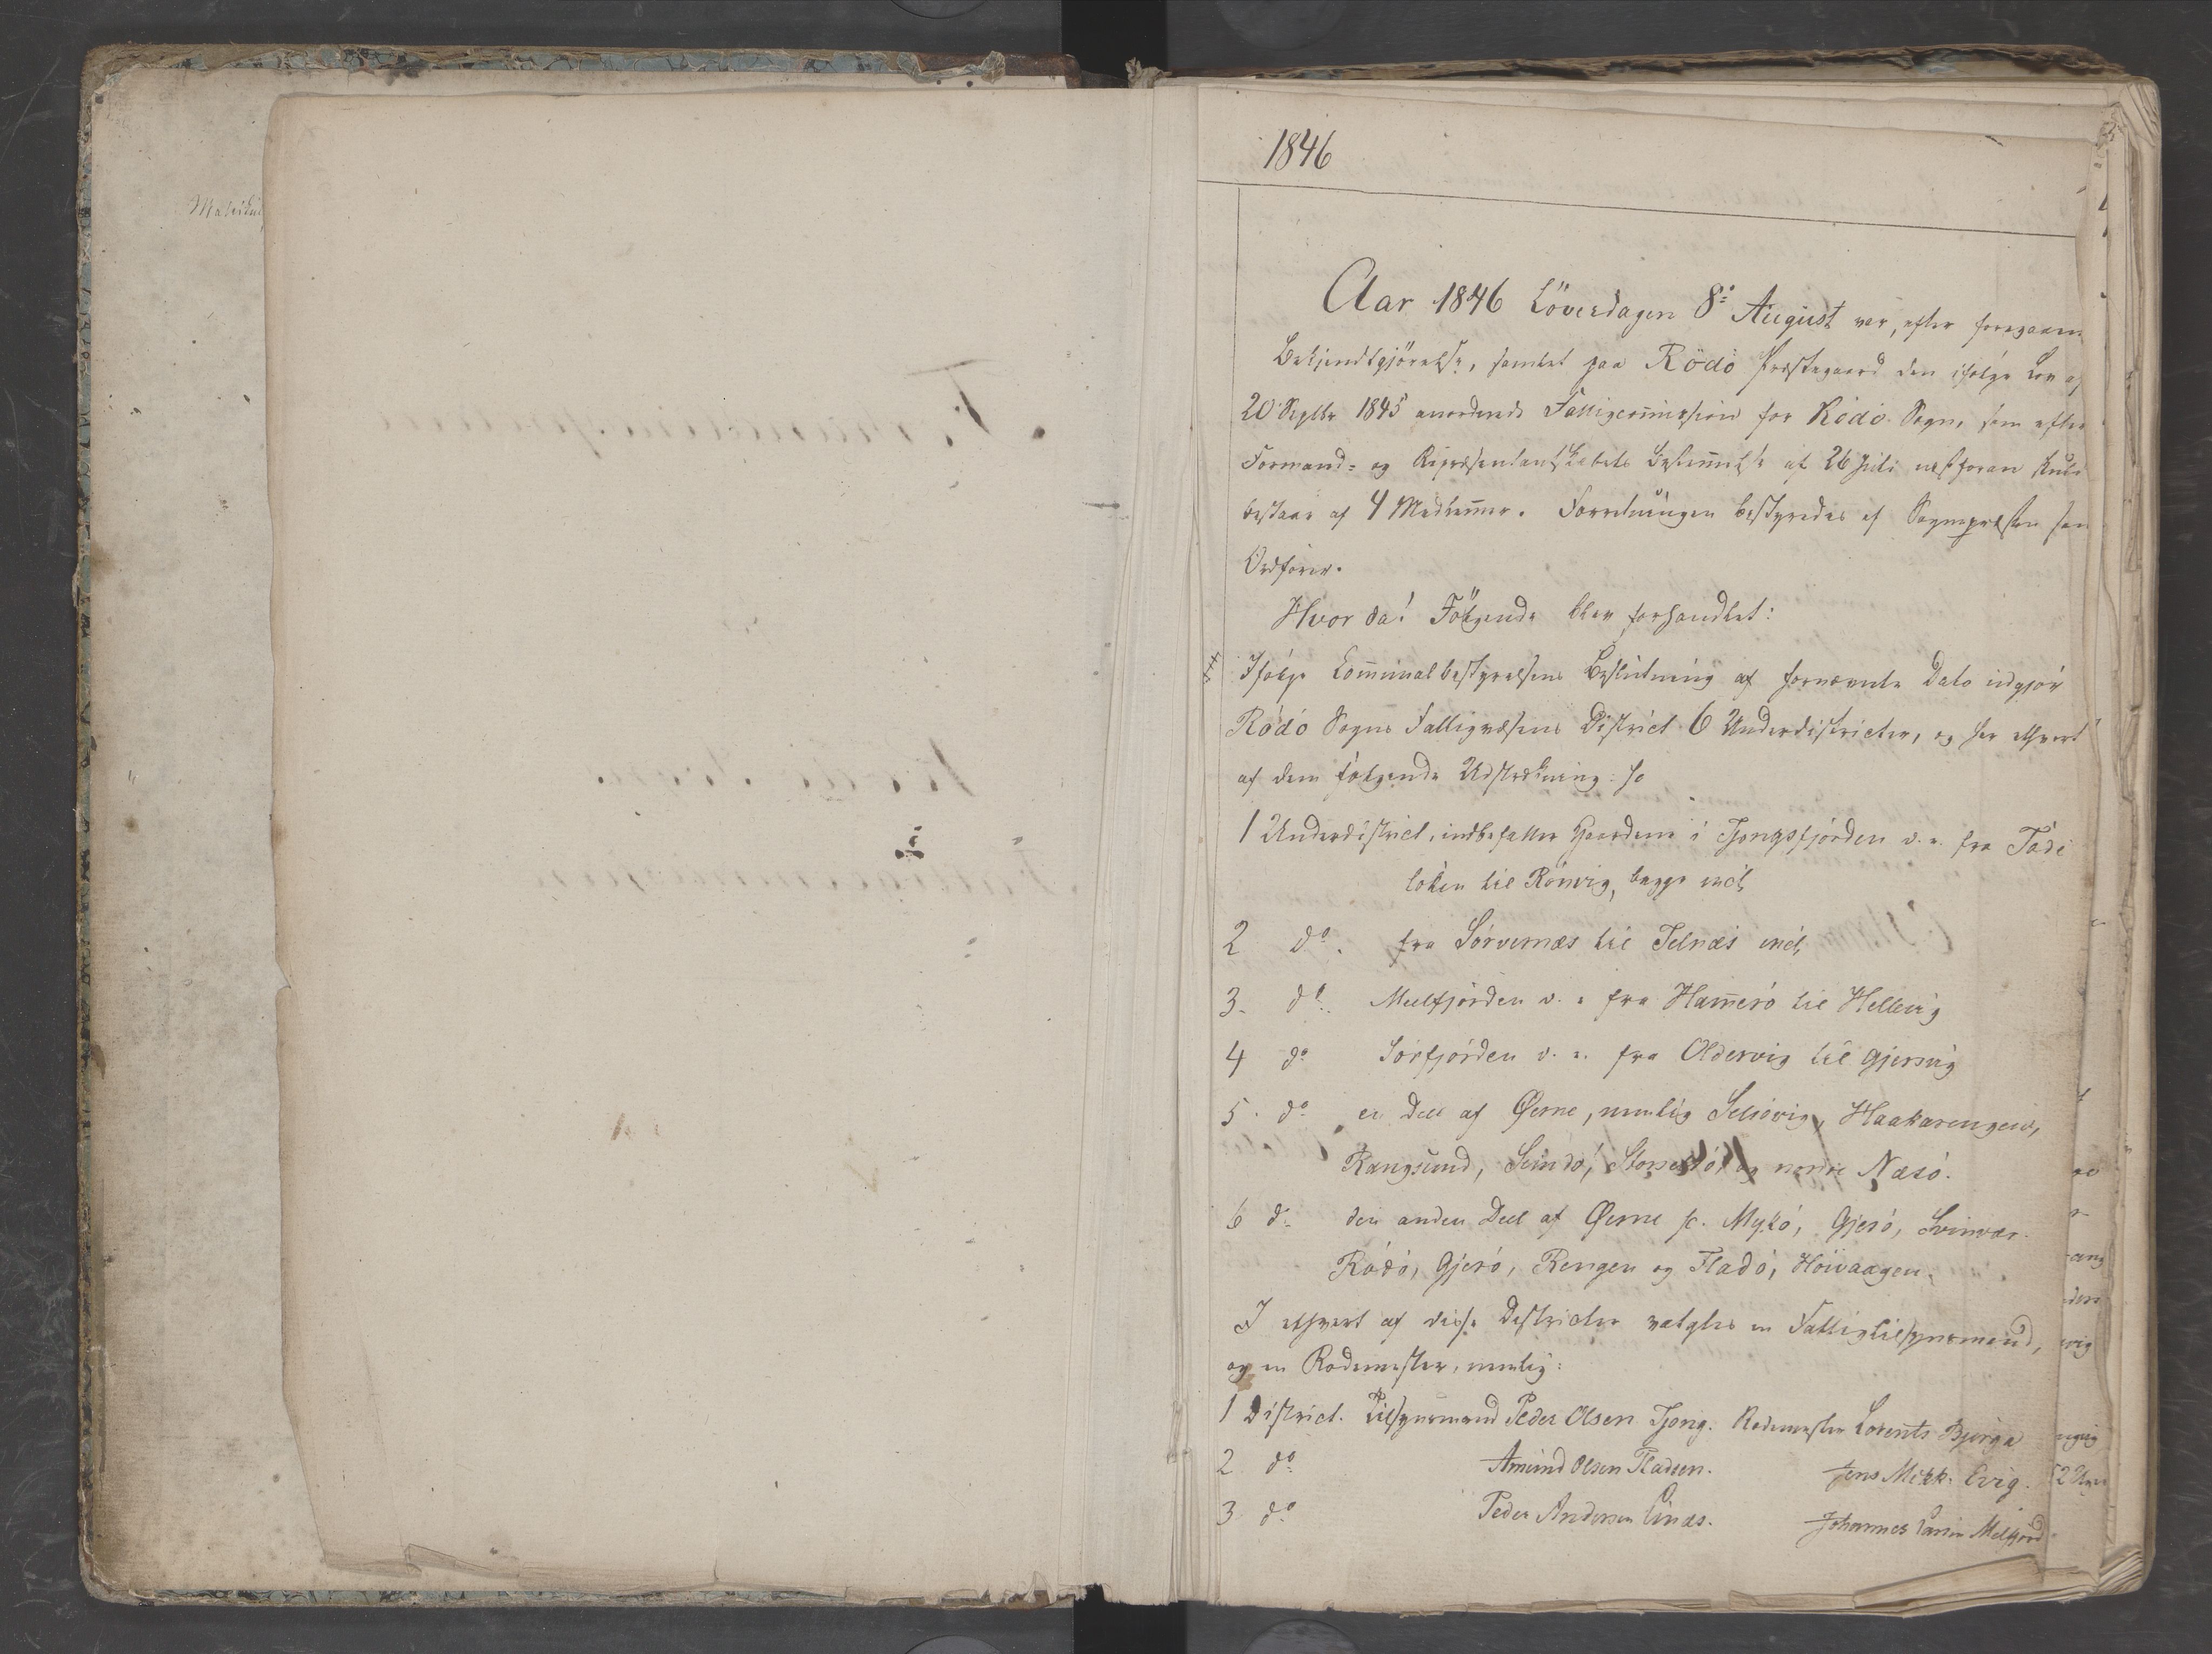 Matrikul
1846
Aar 1846 Löverdagen 8de August var, efter foregaaen
Bekjendtgjörelse, samlet paa Rödö Præstegaard den ifølge Lov af
20 Septbr 1845 anordnede Fattigcommission for Rödö Sogn, som efter
Formand- og Repræsentantskabets Bestemmelse af 26 Juli næstforan
bestaar af 4 Medlemmer. Forretningen bestyredes af Sognepræsten som
Ordförer.
Hvor da! Fölgende blev forhandlet:
Ifölge Communalbestyrelsens Beslutning af fornævnte Dato udgjör
Rödö Sogns Fattigvæsens District 6 Underdistricter, og har ethvert
af dem fölgende Udstrækning: so
1 Underdistrict, indbefatter Gaardene i Tjongsfjorden v. s. fra
til Rönvig, begge incl.
2 do. fra Sörvernæs til Telnæs incl,
3. do. Melfjörden v. s fra Hamerö til Hellevig
4 do Sörfjörden v. s. fra Oldervig til Gjersvig
5. do en Deel af Øerne, nemlig Selsövig, Haakarengen,
Rangsund, Sundö, Storselsö, og nordre Næsö.
6 do den anden Deel af Øerne sc. Mykö, Gjesö, Svinvær
Rödö, Gjerö, Rengen og Fladö, Höivaagen.
I ethvert af disse Districter valgtes en Fattigtilsynsmand,
og en Rodemester, nemlig:
1 District. Tilsynsmand Peder Olsen Tjong. Rodemester Lorents Bjerga
2 do Amund Olsen Fladsen. Jens Mikk. Evig.
3 do Peder Andersen Ernæs. Johannes Larsen Melfjord